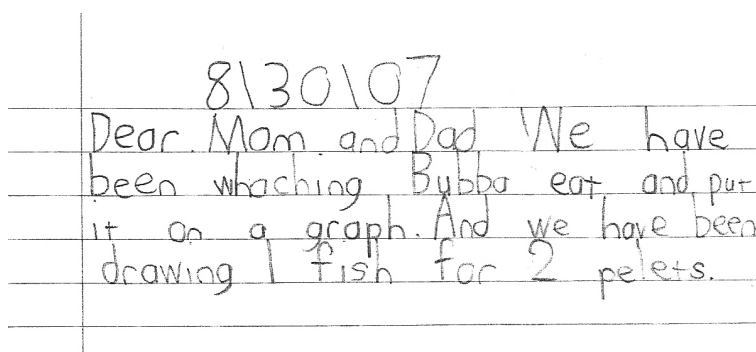 8\30\07
Dear. Mom. and Dad We have
been whaching Bubba eat and put
it on a graph. And we have been
drawing 1 fish for 2 pelets.